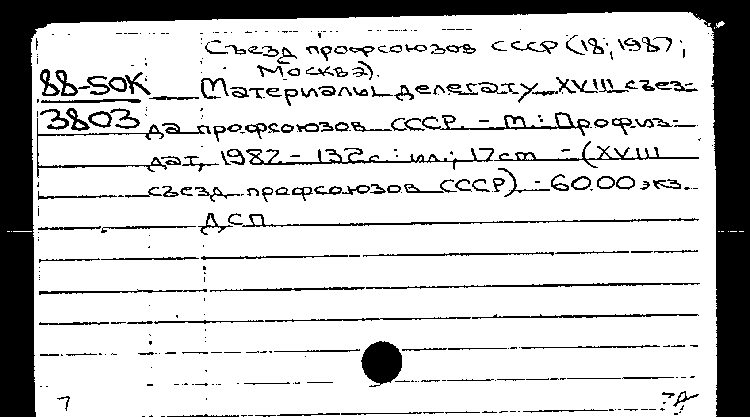 Съезд профсоюзов СССР (18; 1987;
Москва).
88-50К Материалы делегату XVIII съез-
3803 да профсоюзов СССР. - М.: Профиз-
дат, 1987 - 132 с.: ил.; 17 см - (XVIII
съезд профсоюзов СССР) - 6000 экз.
ДСП
7